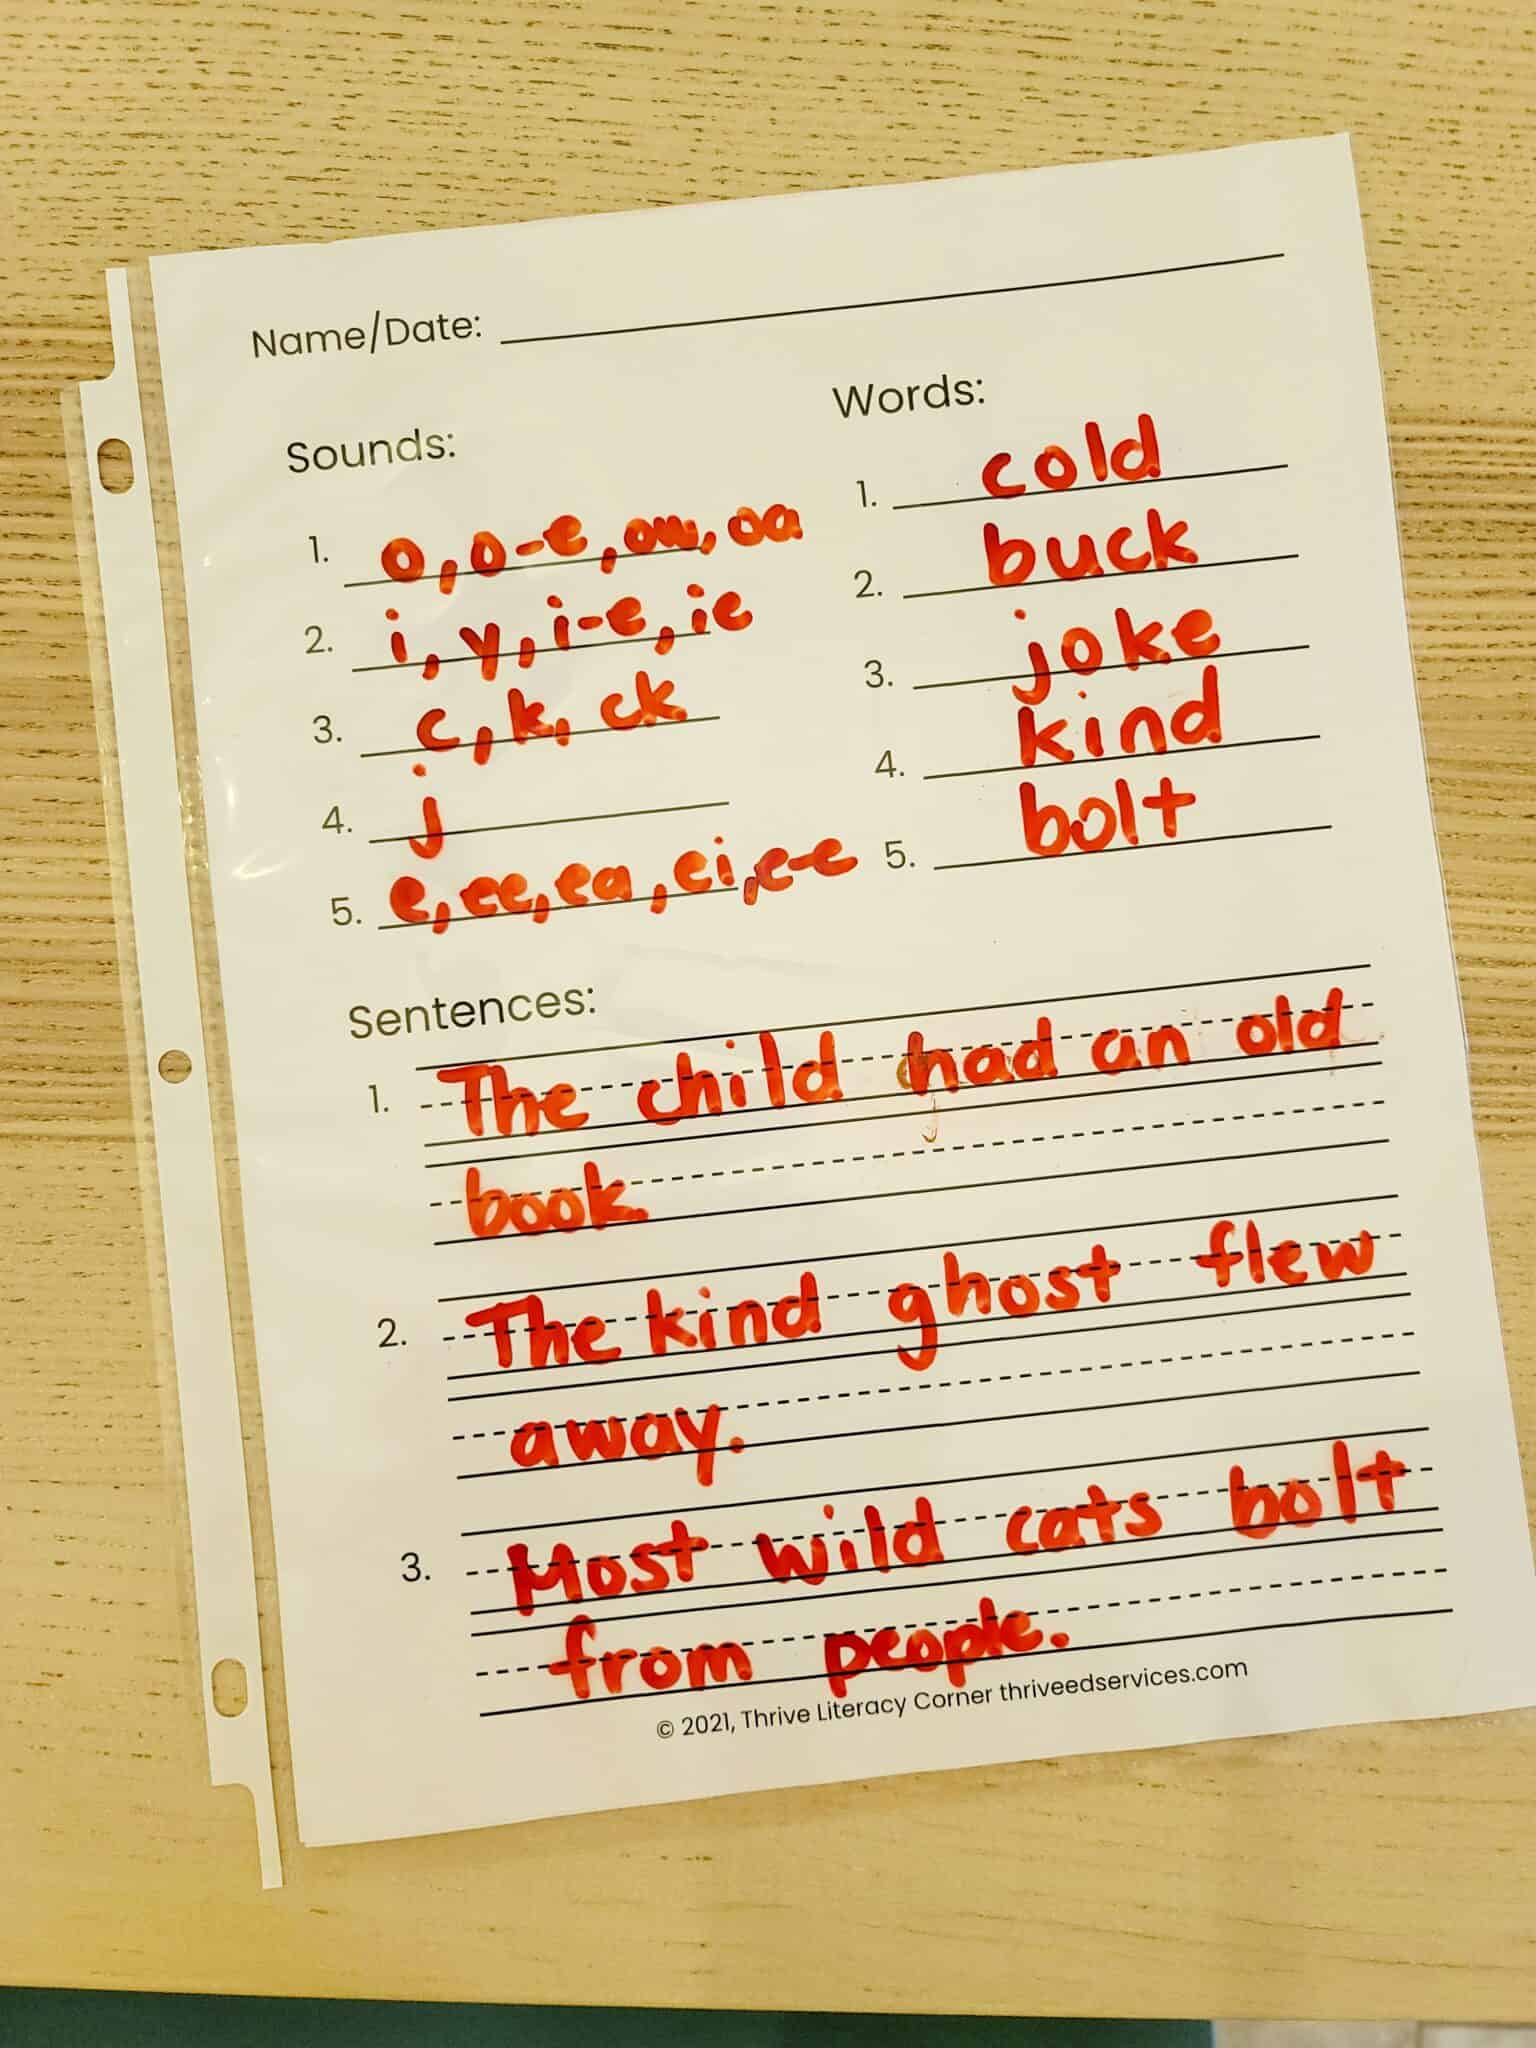 Name/Date:
Sounds:
1. o, o-e, ow, oa
2. i, y, i-e, ie
3. c, k, ck
4. j
5. e, ee, ea, ei, e-e
Words:
1. cold
2. buck
3. joke
4. kind
5. bolt
Sentences:
1. The child had an old
book.
2. The kind ghost flew
away.
3. Most wild cats bolt
from people.
© 2021, Thrive Literacy Corner thriveedservices.com